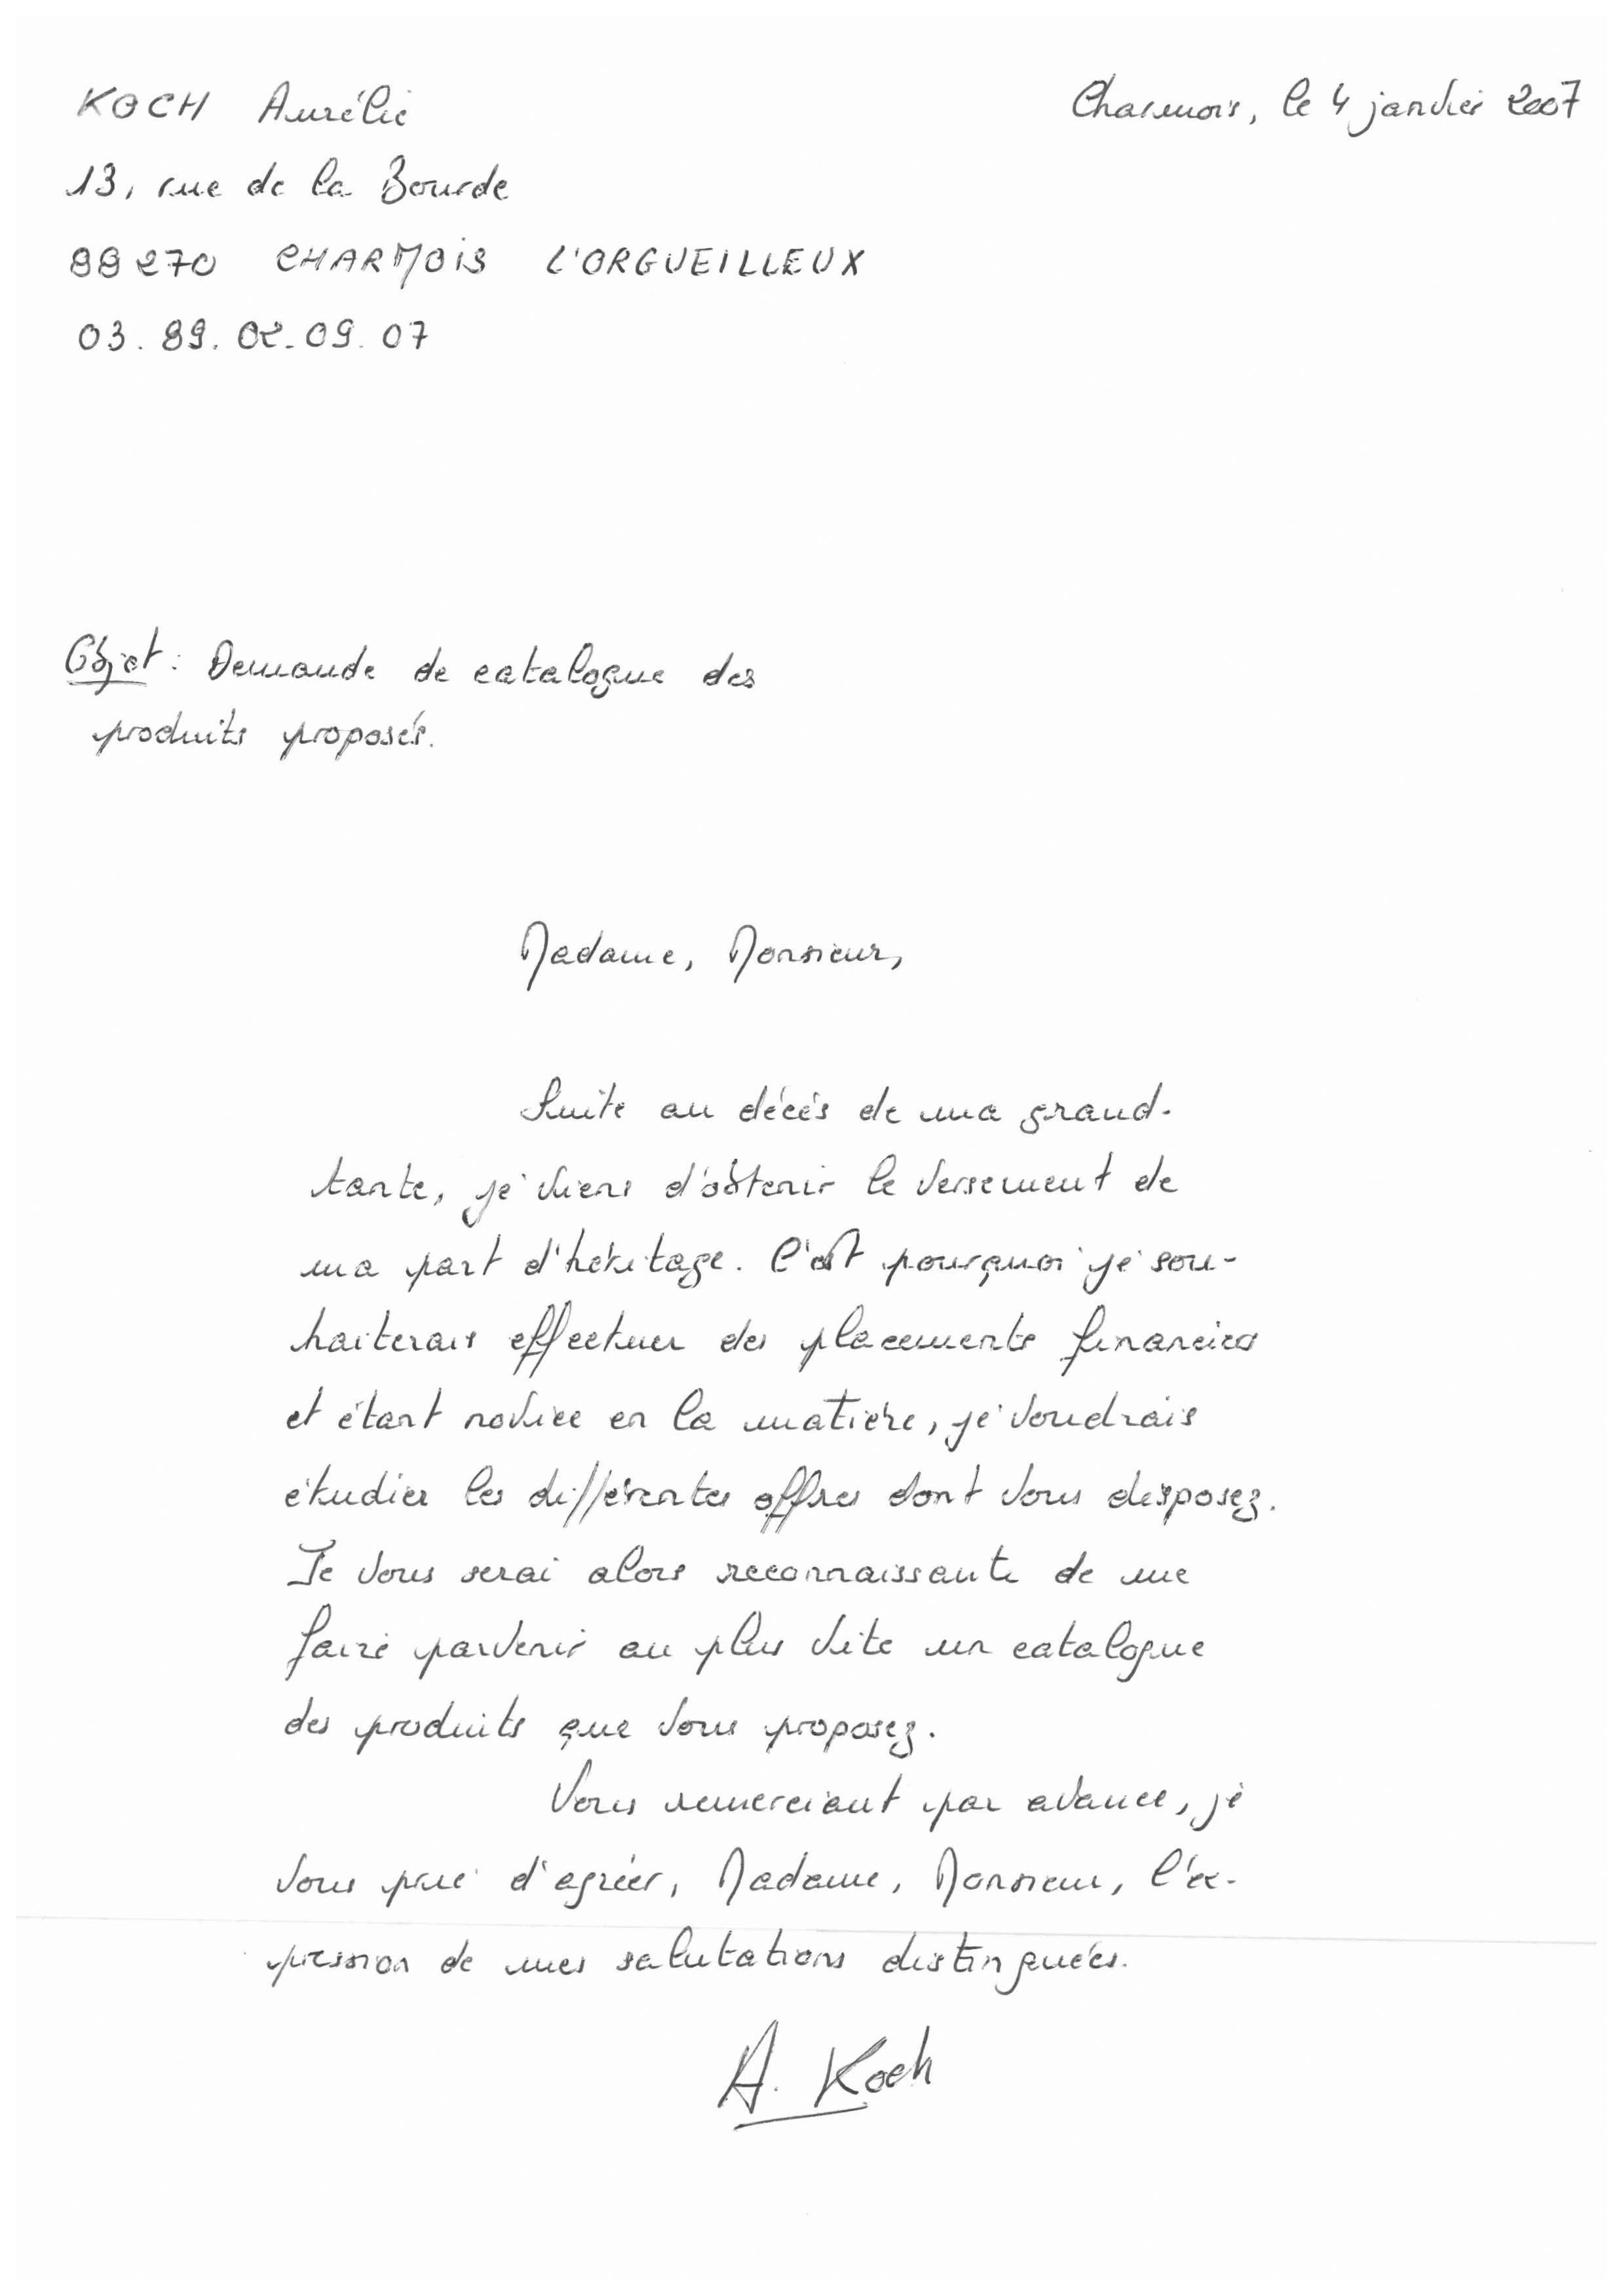 KOCH Aurélie
Charmois, le 4 janvier 2007
13, rue de la Bourde
88270 CHARMOIS L'ORGUEILLEUX
03.89.02.09.07
Objet : Demande de catalogue des
produits proposés.
Madame, Monsieur,
Suite au décès de ma grand-
tante, je viens d'obtenir le versement de
ma part d'héritage. C'est pourquoi je sou-
haiterais effectuer des placements financiers
et étant novice en la matière, je voudrais
étudier les différentes offres dont vous disposez.
Je vous serai alors reconnaissante de me
faire parvenir au plus vite un catalogue
des produits que vous proposez.
Vous remerciant par avance, je
vous prie d'agréer, Madame, Monsieur, l'ex-
pression de mes salutations distinguées.
A. Koch